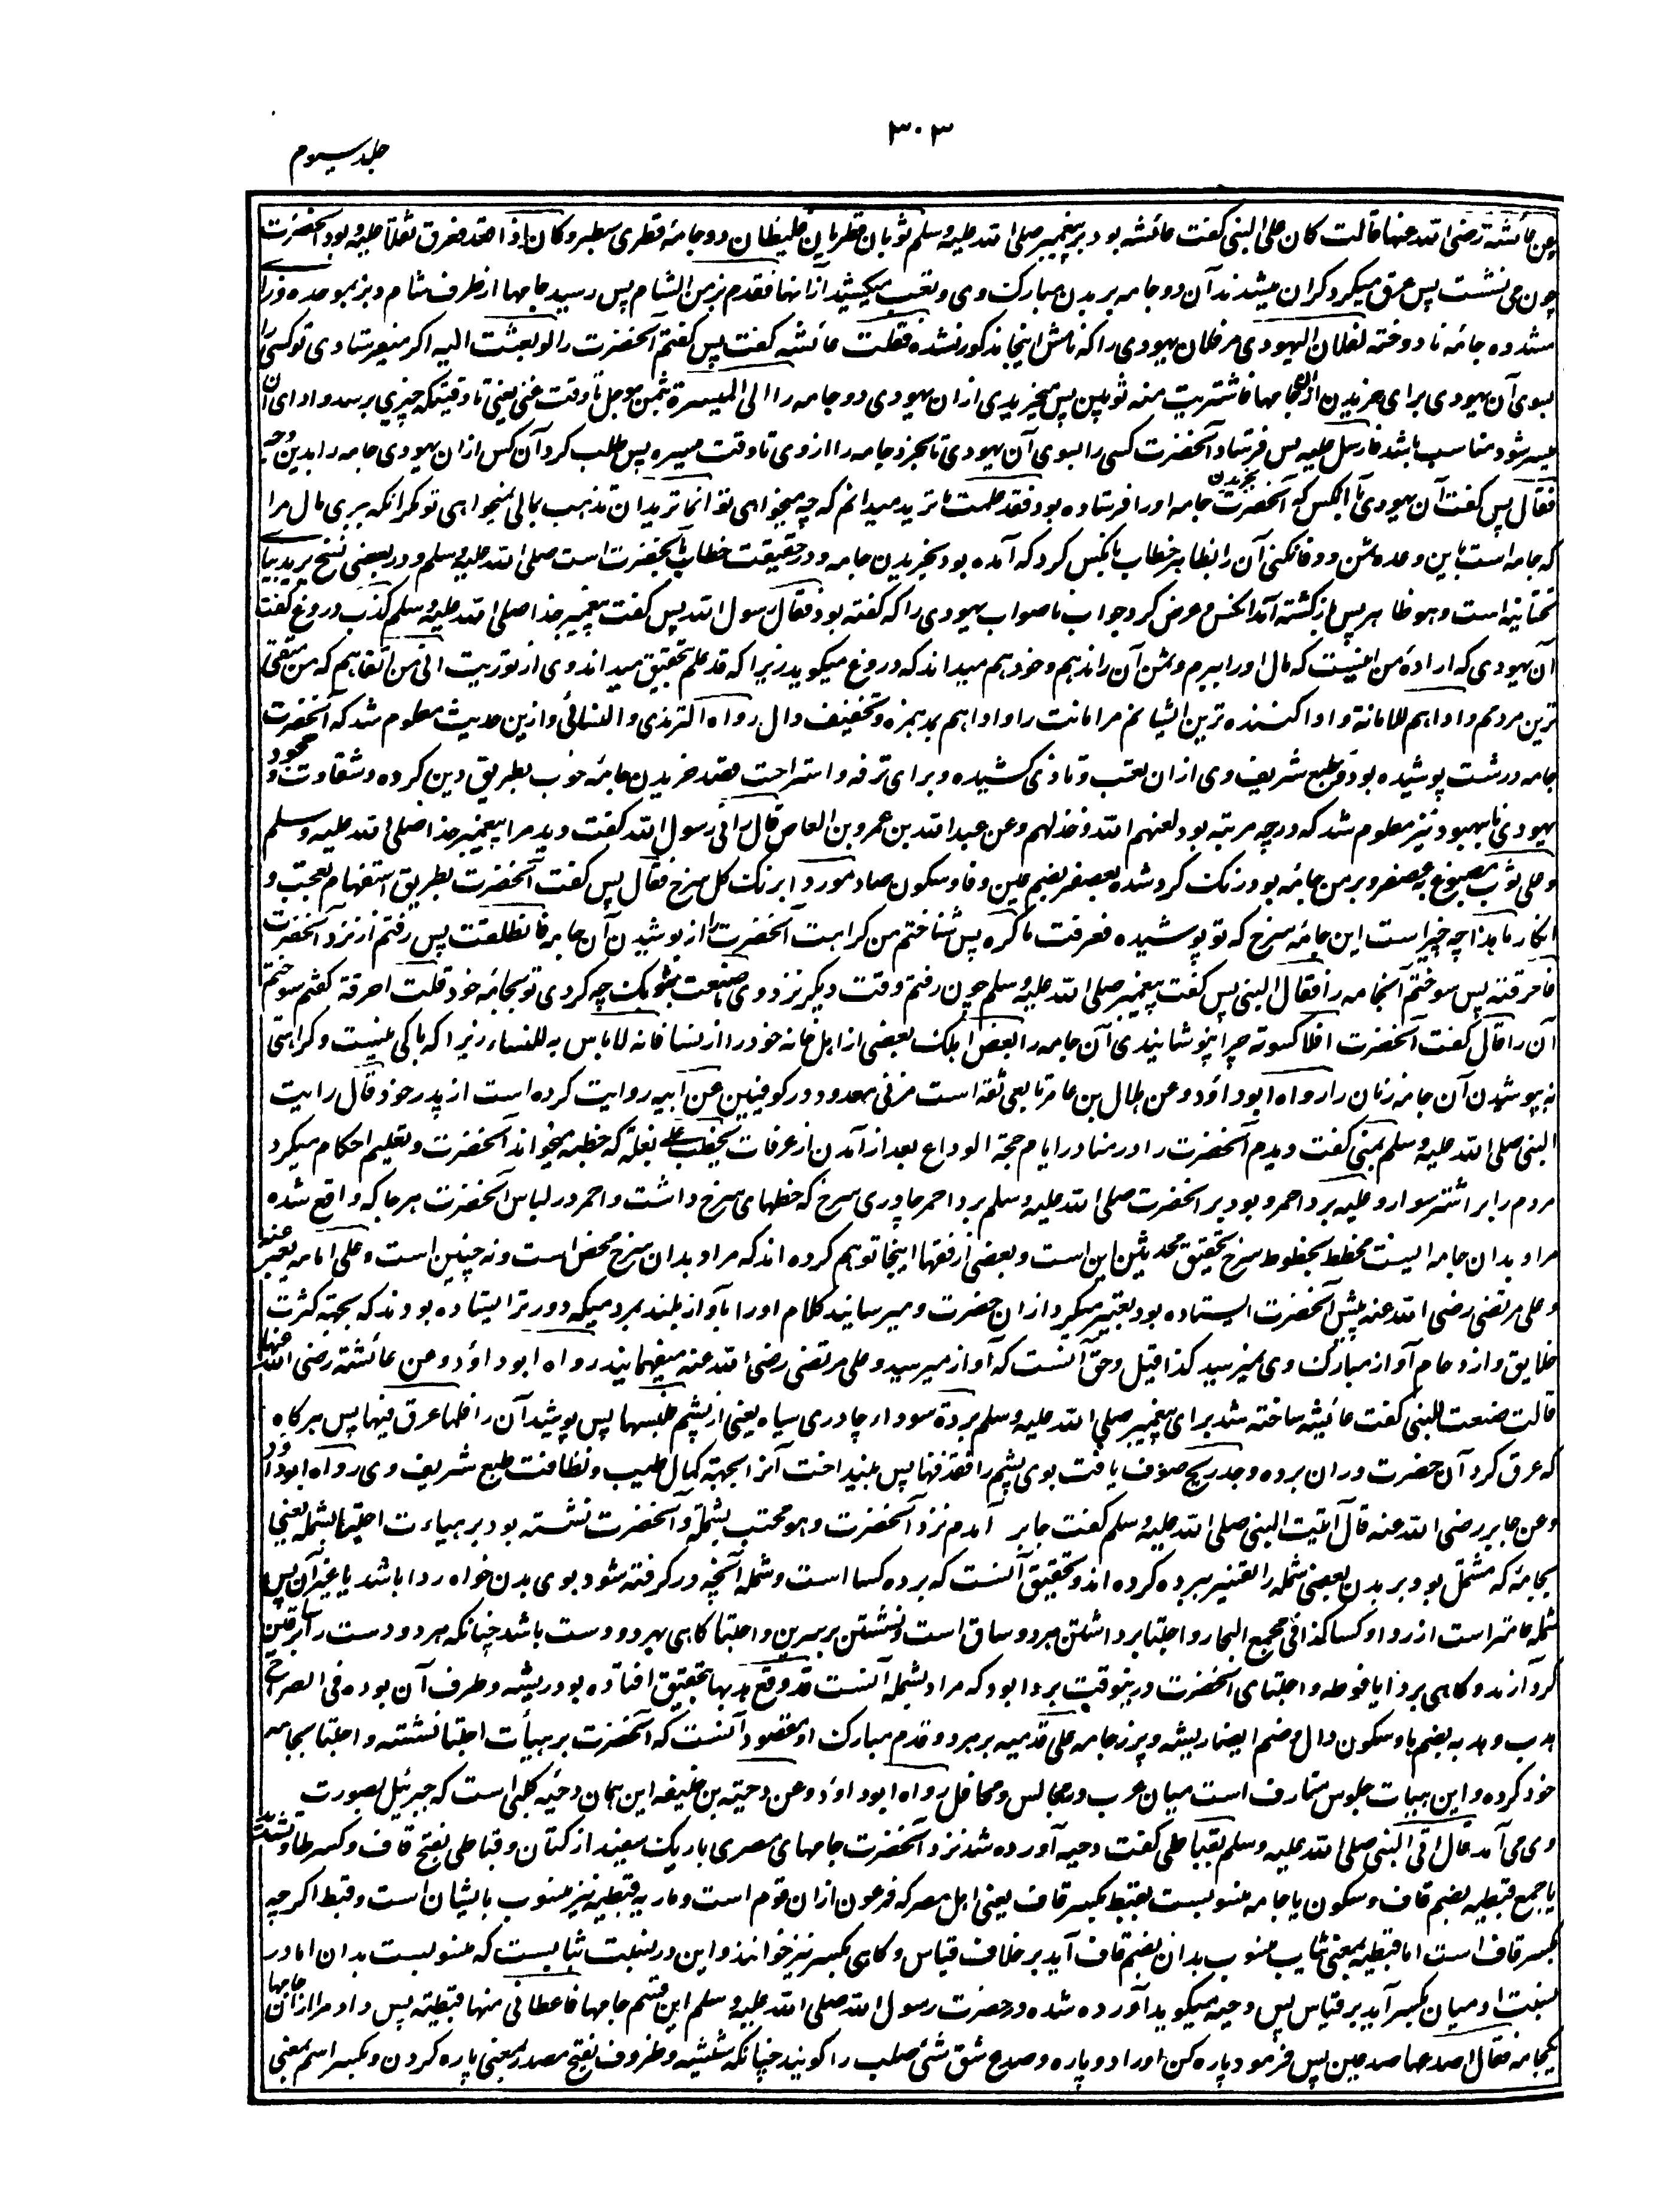 ۳۰۳
جلد سیوم
عن عائشة رضی الله عنها قالت کان علی النبی گفت عائشه بود بر پیغمبر صلی الله علیه وسلم ثوبان قطریان غلیظان دو جامهٔ قطری سطبر وکان اذا قعد فعرق ثقلا علیه بود آنحضرت
چون می نشست پس عرق میکرد گران میشدند آن دو جامه بر بدن مبارک وی و تعب میکشید ازانها فقدم بز من الشام پس رسید جامها از طرف شام و بز بموحده و زا
مشدده جامهٔ نادوخته لفلان الیهودی مر فلان یهودی را که نامش اینجا مذکور نشده فقلت عائشه گفت پس گفتم آنحضرت را لو بعثت الیه اکر میفرستادی تو کسی را
بسوی آن یهودی برای خریدن ازان جامها فاشتریت منه ثوبین پس میخریدی ازان یهودی دو جامه را الی المیسرة بثمن موجل تا وقت غنی یعنی تا وقتیکه چیزی برسد و ادای آن
میسر شود مناسب باشد فارسل الیه پس فرستاد آنحضرت کسی را بسوی آن یهودی تا بخرد جامه را ازوی تا وقت میسره پس طلب کرد آن کس ازان یهودی جامه را بدین وجه
فقال پس گفت آن یهودی بآنکس که آنحضرت بخریدن جامه او را فرستاده بود فقد علمت ما ترید میدانم که چه میخواهی تو انما ترید ان تذهب بمالی نمیخواهی تو مگر آنکه ببری مال مرا
که جامه است باین وعده ثمن و وفا نکنی آن را بظاهر خطاب بآنکس کرد که آمده بود بخریدن جامه و در حقیقت خطاب بآنحضرت است صلی الله علیه وسلم و در بعضی نسخ یرید بیای
تحتانیه است و هو ظاهر پس باز گشته آمد آنکس و عرض کرد جواب ناصواب یهودی را که گفته بود فقال رسول الله پس گفت پیغمبر خدا صلی الله علیه وسلم کذب دروغ گفت
آن یهودی که ارادهٔ من اینست که مال او را ببرم و ثمن آن را ندهم و خود هم میداند که دروغ میکوید زیرا که قد علم بتحقیق میداند وی از توریت انی من اتقاهم که من متقی
ترین مردمم و اداهم للامانة و ادا کننده ترین ایشانم مر امانت را و اداهم بمد همزه و تخفیف دال رواه الترمذی و النسائی و ازین حدیث معلوم شد که آنحضرت
جامه درشت پوشیده بود و طبع شریف وی ازان تعب و تاذی کشیده و برای ترفه و استراحت قصد خریدن جامهٔ خوب بطریق دین کرده و شقاوت و جحود
یهودی نابهبود نیز معلوم شد که درچه مرتبه بود لعنهم الله و خذلهم وعن عبد الله بن عمرو بن العاص قال رانی رسول الله گفت دید مرا پیغمبر خدا صلی الله علیه وسلم
وعلی ثوب مصبوغ بعصفر و بر من جامهٔ بود رنگ کرده شده بعصفر بضم عین و فا و سکون صاد موردا برنگ گل سرخ فقال پس گفت آنحضرت بطریق استفهام تعجب و
انکار ما هذا چه چیز است این جامهٔ سرخ که تو پوشیده فعرفت ما کره پس شناختم من کراهت آنحضرت را از پوشیدن آن جامه فانطلقت پس رفتم از نزد آنحضرت
فاحرقته پس سوختم آنجامه را فقال النبی پس گفت پیغمبر صلی الله علیه وسلم چون رفتم وقت دیگر نزد وی ما صنعت بثوبک چه کردی تو بجامهٔ خود قلت احرقته گفتم سوختم
آن را قال گفت آنحضرت افلا کسوته چرا نپوشانیدی آن جامه را بعض اهلک بعضی از اهل خانه خود را از نسا فانه لا باس به للنساء زیرا که باکی نیست و کراهتی
نه بپوشیدن آن جامه زنان را رواه ابو داؤد وعن هلال بن عامر تابعی ثقه است مزنی معدود در کوفیین عن ابیه روایت کرده است از پدر خود قال رایت
النبی صلی الله علیه وسلم بمنی گفت دیدم آنحضرت را در منا در ایام حجة الوداع بعد از آمدن از عرفات یخطب علی بغلة که خطبه میخواند آنحضرت و تعلیم احکام میکرد
مردم را بر اشتر سوار وعلیه برد احمر و بود بر آنحضرت صلی الله علیه وسلم برد احمر چادری سرخ که خطهای سرخ داشت و احمر در لباس آنحضرت هرجا که واقع شده
مراد بدان جامه ایست مخطط بخطوط سرخ تحقیق محدثین این است و بعضی از فقها اینجا توهم کرده اند که مراد بدان سرخ محض است ونه چنین است وعلی امامه یعبر عنه
و علی مرتضی رضی الله عنه پیش آنحضرت ایستاده بود تعبیر میکرد ازان حضرت و میرسانید کلام او را بآواز بلند بمردمیکه دورتر ایستاده بودند که بجهته کثرت
خلایق و ازدحام آواز مبارک وی نمیرسید کذا قیل وحق آنست که آواز میرسید و علی مرتضی رضی الله عنه میفهمانید رواه ابو داؤد وعن عائشة رضی الله عنها
قالت صنعت للنبی گفت عائیشه ساخته شد برای پیغمبر صلی الله علیه وسلم بردة سوداء چادری سیاه یعنی از پشم فلبسها پس پوشید آن را فلما عرق فیها پس هرگاه
که عرق کرد آن حضرت دران برده وجد ریح صوف یافت بوی پشم را فقذفها پس بینداخت آنرا بجهته کمال طیب و نظافت طبع شریف وی رواه ابو داؤد
وعن جابر رضی الله عنه قال اتیت النبی صلی الله علیه وسلم گفت جابر آمدم نزد آنحضرت وهو محتب بشملة و آنحضرت نشسته بود بر هیاءت احتبا بشمله یعنی
بجامهٔ که مشتمل بود بر بدن بعضی شمله را تفسیر ببرده کرده اند و تحقیق آنست که برده کسا است و شمله آنچه در گرفته شود بوی بدن خواه ردا باشد یا غیر آن پس
شمله عامتر است از ردا و کسا کذا فی مجمع البحار و احتبا برداشتن هر دو ساق است و نشستن بر سرین و احتبا گاهی بهر دو دست باشد چنانکه هر دو دست را بر ساقین
گرد آرند و گاهی بردا یا فوطه و احتبای آنحضرت درینوقت بردا بود که مراد بشمله آنست قد وقع هدبها بتحقیق افتاده بود ریشه و طرف آن برده فی الصراح
هدب و هدبه بضم ها و سکون دال و ضم ایضا ریشه و پرز جامه علی قدمیه بر هر دو قدم مبارک او مقصود آنست که آنحضرت بر هیأت احتبا نشسته و احتبا بجامه
خود کرده و این هیات جلوس متعارف است میان عرب و در مجالس و محافل رواه ابو داؤد وعن دحیة بن خلیفه این همان دحیه کلبی است که جبرئیل بصورت
وی می آمد قال اتی النبی صلی الله علیه وسلم بقباطی گفت دحیه آورده شد نزد آنحضرت جامهای مصری باریک سفید از کتان و قباطی بفتح قاف و کسر طا و تشدید
یا جمع قبطیه بضم قاف و سکون با جامه منسوبست بقبط بکسر قاف یعنی اهل مصر که فرعون ازان قوم است و ماریه قبطیه نیز منسوب بایشان است و قبط اگرچه
بکسر قاف است اما قبطیه بمعنی ثیاب منسوب بدان بضم قاف آید بر خلاف قیاس و گاهی بکسر نیز خوانند و این در نسبت ثیابست که منسوبست بدان اما در
نسبت ادمیان بکسر آید بر قیاس پس دحیه میکوید آورده شده در حضرت رسول الله صلی الله علیه وسلم این قسم جامها فاعطانی منها قبطیة پس داد مرا ازان جامها
یکجامه فقال اصدعها صدعین پس فرمود پاره کن او را دو پاره و صدع شق شئ صلب را گویند چنانکه شیشه و ظروف بفتح مصدر بمعنی پاره کردن و بکسر اسم بمعنی